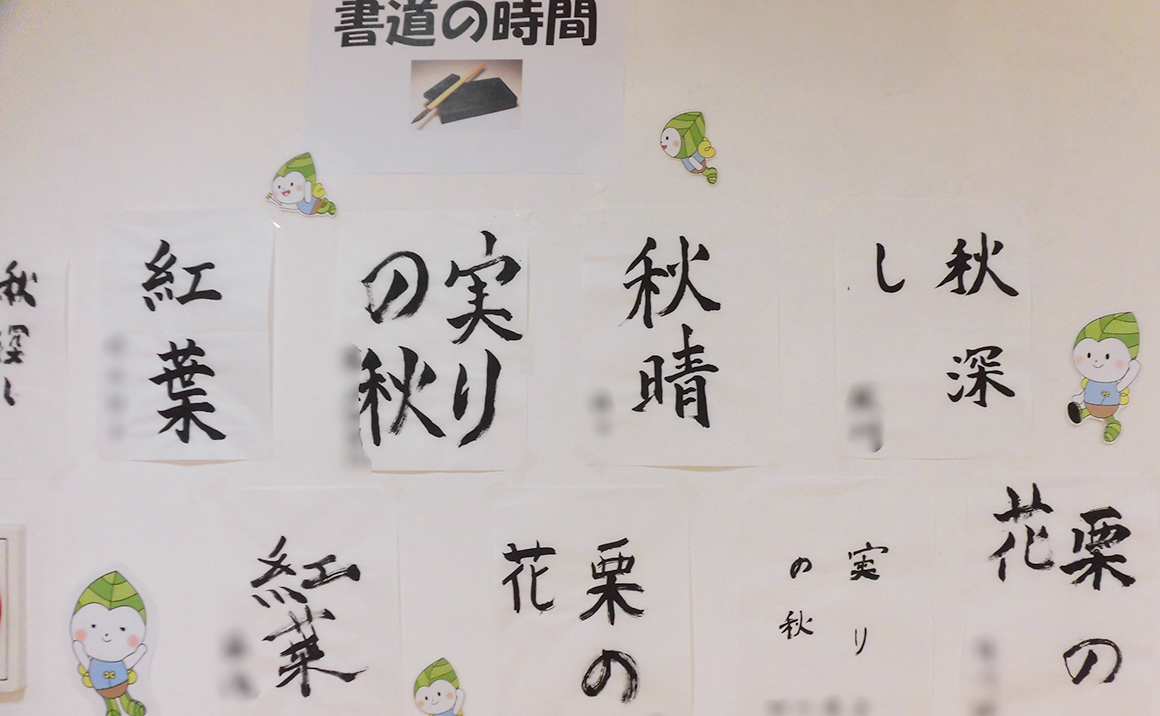 書道の時間
秋深
し
秋晴
実り
の秋
紅葉
秋深し
栗の
花
実り
の秋
栗の
花
紅葉